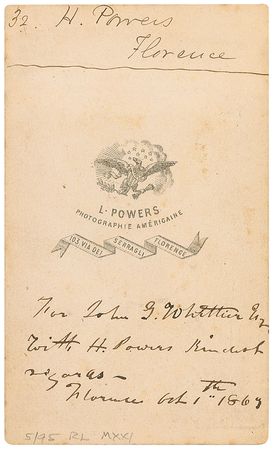 32. H. Powers
Florence
L. POWERS
PHOTOGRAPHIE AMÉRICAINE
103. VIA DEI SERRAGLI FLORENCE
For John G. Whittier Esq
With H. Powers Kindest
regards –
Florence Oct 1th
5/95 RL MXX/